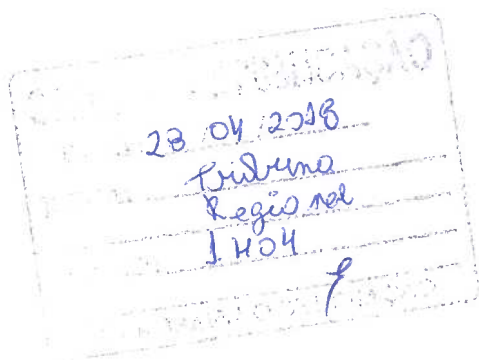 23 04 2018
Tribuna
Regional
1 H04